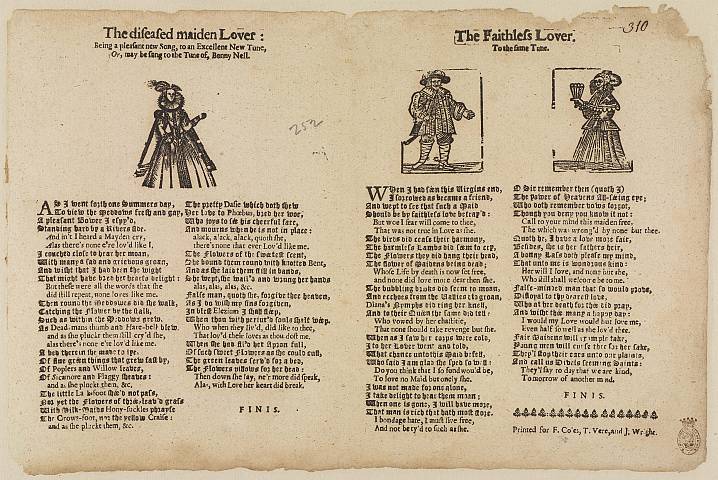 The diseased maiden Lover:
Being a pleasant new Song, to an Excellent New Tune,
Or, may be sung to the Tune of, Bonny Nell.
AS I went forth one Summers day,
To view the Meddows fresh and gay,
A pleasant Bower I espy'd,
Standing hard by a Rivers side,
And in't I heard a Mayden cry,
Alas there's none e're lov'd like I.
I couched close to hear her moan,
With many a sad and grievous groan,
And wisht that I had been the wight
That might have bred her hearts delight:
But these were all the words that she
did still repeat, none loves like me.
Then round the Meddows did she walk,
Catching the Flower by the stalk,
Such as within the Meddows grew,
As Dead-mans thumb and Hare-bell blew,
and as she pluckt them, still cry'd she,
alas there's none e're lov'd like me.
A bed therein she made to lye,
Of fine green things that grew fast by,
Of Poplers and Willow leaves,
Of Sicamore and Flaggy sheaves:
and as she pluckt them, &c.
The little La ksfoot she'd not pass,
Nor yet the Flowers of three-leav'd grass
With Milk-Maids Hony-suckles phrayse
The Crows-foot, nor the yellow Craise:
and as she pluckt them, &c.
The pretty Dasie which doth shew
Her love to Phœbus, bred her woe,
Who joys to see his cheerful face,
And mourns when he is not in place:
alack, alack, alack, quoth she,
there's none that ever Lov'd like me.
The Flowers of the sweetest scent,
She bound them round with knotted Bent,
And as she laid them still in bands,
She wept, she wail'd and wrung her hands
alas, alas, alas, &c.
False man, quoth she, forgive thee heaven,
As I do wish my sins forgiven,
In blest Elezium I shall sleep,
When thou with perjur'd souls shalt weep.
Who when they liv'd, did like to thee,
That lov'd their loves as thou dost me.
When she had fill'd her Apron full,
Of such sweet Flowers as she could cull,
The green leaves serv'd for a bed,
The Flowers pillows for her head:
Then down she lay, ne'r more did speak,
Alas, with Love her heart did break.
FINIS.
252
310
The Faithless Lover.
To the same Tune.
WHen I had seen this Virgins end,
I sorrowed as became a friend,
And wept to see that such a Maid
Should be by faithless love betray'd:
But wo I fear will come to thee,
That was not true in Love as she.
The birds did cease their harmony,
The harmless Lambs did seem to cry,
The Flowers they did hang their head,
The flower of Maidens being dead:
Whose Life by death is now set free,
and none did love more dear then she.
The bubling brooks did seem to moan,
And ecchoes from the Vallies to groan,
Diana's Nymphs did ring her knell,
And to their Queen the same did tell:
Who vowed by her chastitie,
That none should take revenge but she.
When as I saw her corps were cold,
I to her Lover went and told,
What chance unto this Maid befell,
Who said I am glad she sped so well:
Do you think that I so fond would be,
To love no Maid but onely she.
I was not made for one alone,
I take delight to hear them moan;
When one is gone, I will have more,
That man is rich that hath most store.
I bondage hate, I must live free,
And not be ty'd to such as she.
O Sir remember then (quoth I)
The power of Heavens All-seeing eye;
Who doth remember vows forgot,
Though you deny you know it not:
Call to your mind this maiden free,
The which was wrong'd by none but thee.
Quoth he, I have a love more fair,
Besides, she is her fathers heir,
A bonny Lass doth please my mind,
That unto me is wondrous kind:
Her will I love, and none but she,
Who still shall welcome be to me.
False-minded man that so would prove,
Disloyal to thy dearest love,
Who at her death for thee did pray,
And wisht thee many a happy day:
I would my Love would but love me,
Even half so well as she lov'd thee.
Fair Maidens will example take,
Young men will curse thee for her sake,
They'l stop their ears unto our plaints,
And call us Divels seeming Saints:
They'l say to day that we are kind,
To morrow of another mind.
FINIS.
Printed for F. Coles, T. Vere, and J. Wright.